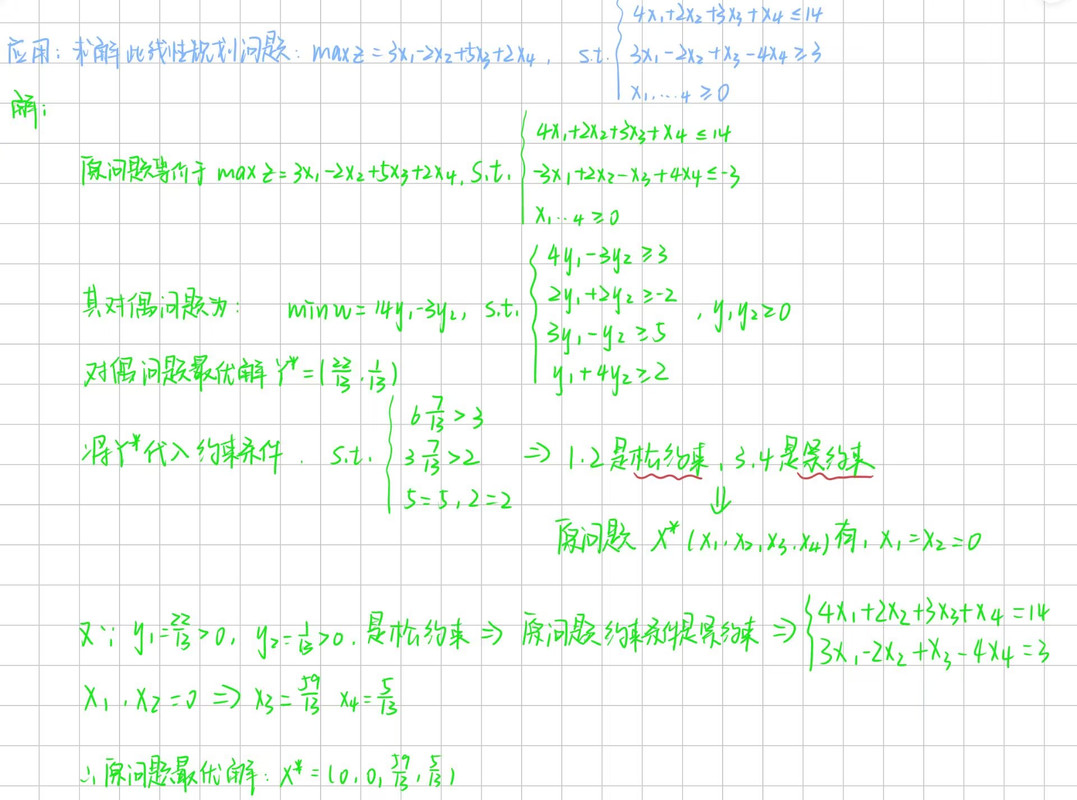 应用：求解此线性规划问题：max z = 3x₁-2x₂+5x₃+2x₄， s.t. { 4x₁+2x₂+3x₃+x₄ ≤ 14
3x₁-2x₂+x₃-4x₄ ≥ 3
x₁,...₄ ≥ 0
解：
原问题等价于 max z = 3x₁-2x₂+5x₃+2x₄, s.t. { 4x₁+2x₂+3x₃+x₄ ≤ 14
-3x₁+2x₂-x₃+4x₄ ≤ -3
x₁...₄ ≥ 0
其对偶问题为： min w = 14y₁-3y₂, s.t. { 4y₁-3y₂ ≥ 3
2y₁+2y₂ ≥ -2
3y₁-y₂ ≥ 5
y₁+4y₂ ≥ 2
, y₁y₂ ≥ 0
对偶问题最优解 Y* = (22/13, 1/13)
将Y*代入约束条件. s.t. { 6 7/13 > 3
3 7/13 > 2
5=5, 2=2
⇒ 1.2是松约束, 3.4是紧约束
⇓
原问题 X*(x₁,x₂,x₃,x₄)有, x₁=x₂=0
又∵ y₁=22/13>0, y₂=1/13>0. 是松约束 ⇒ 原问题约束条件是紧约束 ⇒ { 4x₁+2x₂+3x₃+x₄ = 14
3x₁-2x₂+x₃-4x₄ = 3
x₁, x₂ = 0 ⇒ x₃ = 59/13 x₄ = 5/13
∴ 原问题最优解：X* = (0, 0, 59/13, 5/13)